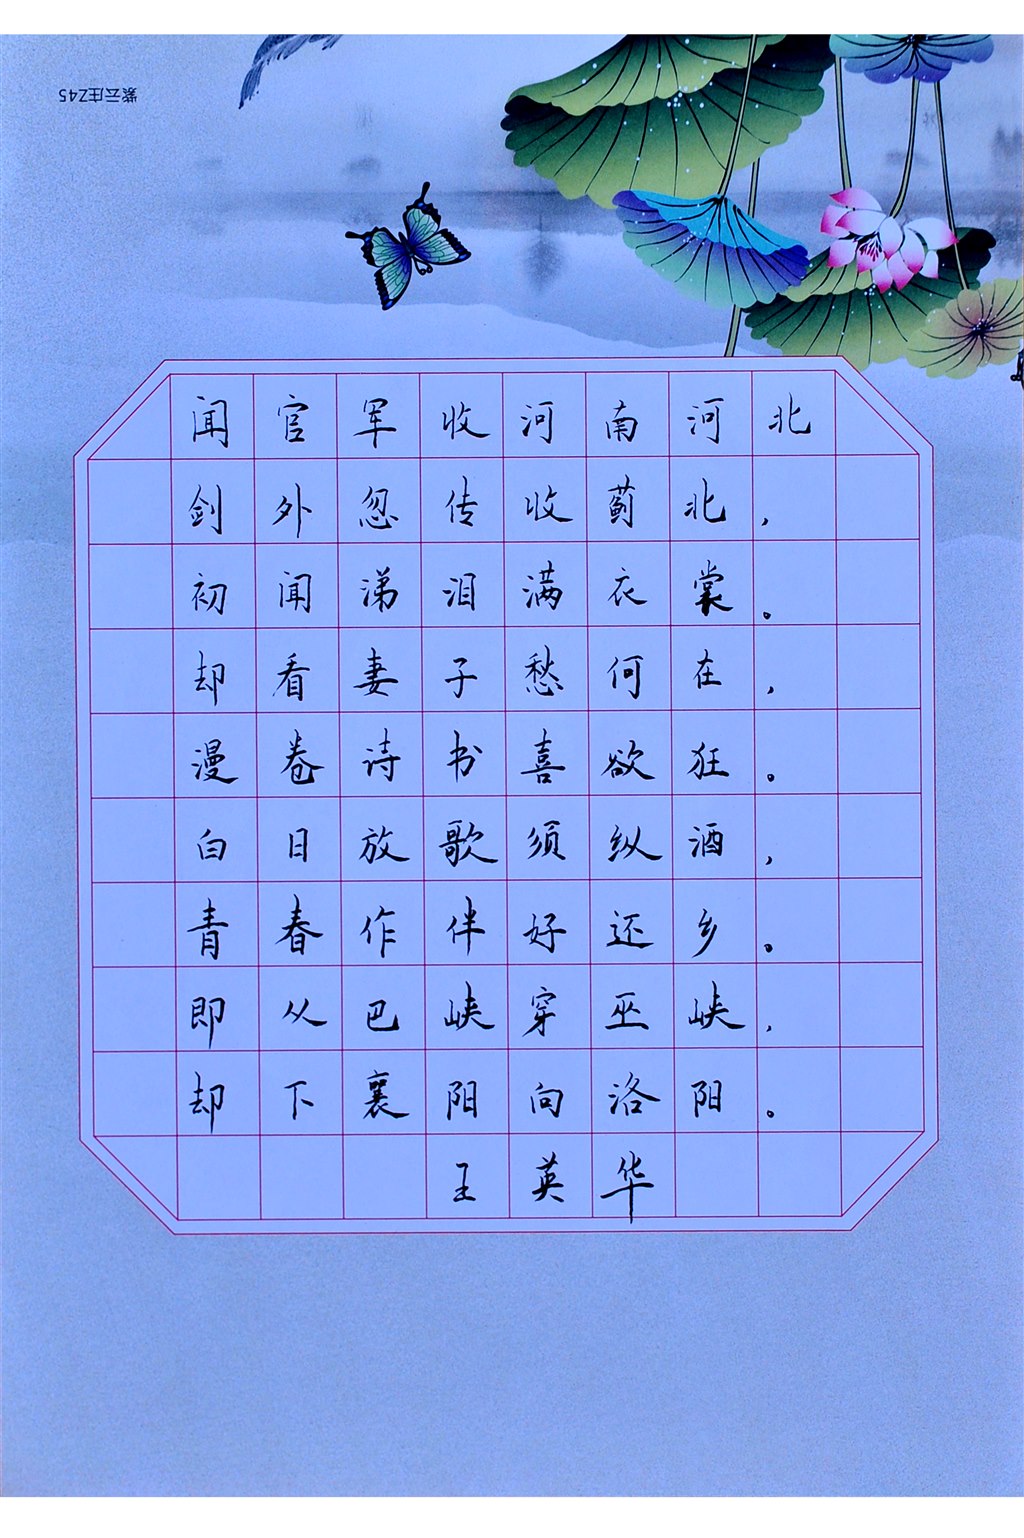 紫云庄Z45
闻官军收河南河北
剑外忽传收蓟北，
初闻涕泪满衣裳。
却看妻子愁何在，
漫卷诗书喜欲狂。
白日放歌须纵酒，
青春作伴好还乡。
即从巴峡穿巫峡，
却下襄阳向洛阳。
王英华